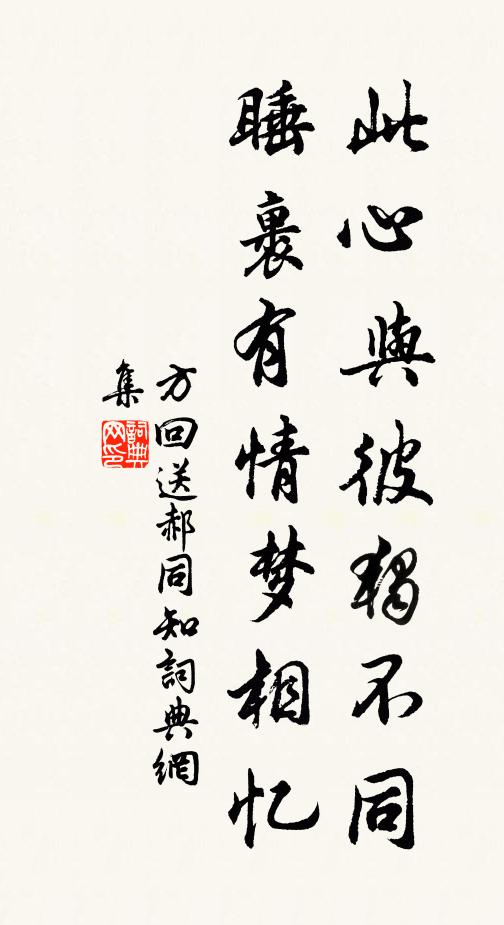 此心與彼獨不同
睡裏有情梦相忆
方回送郝同知詞典網
集
詞典
网印